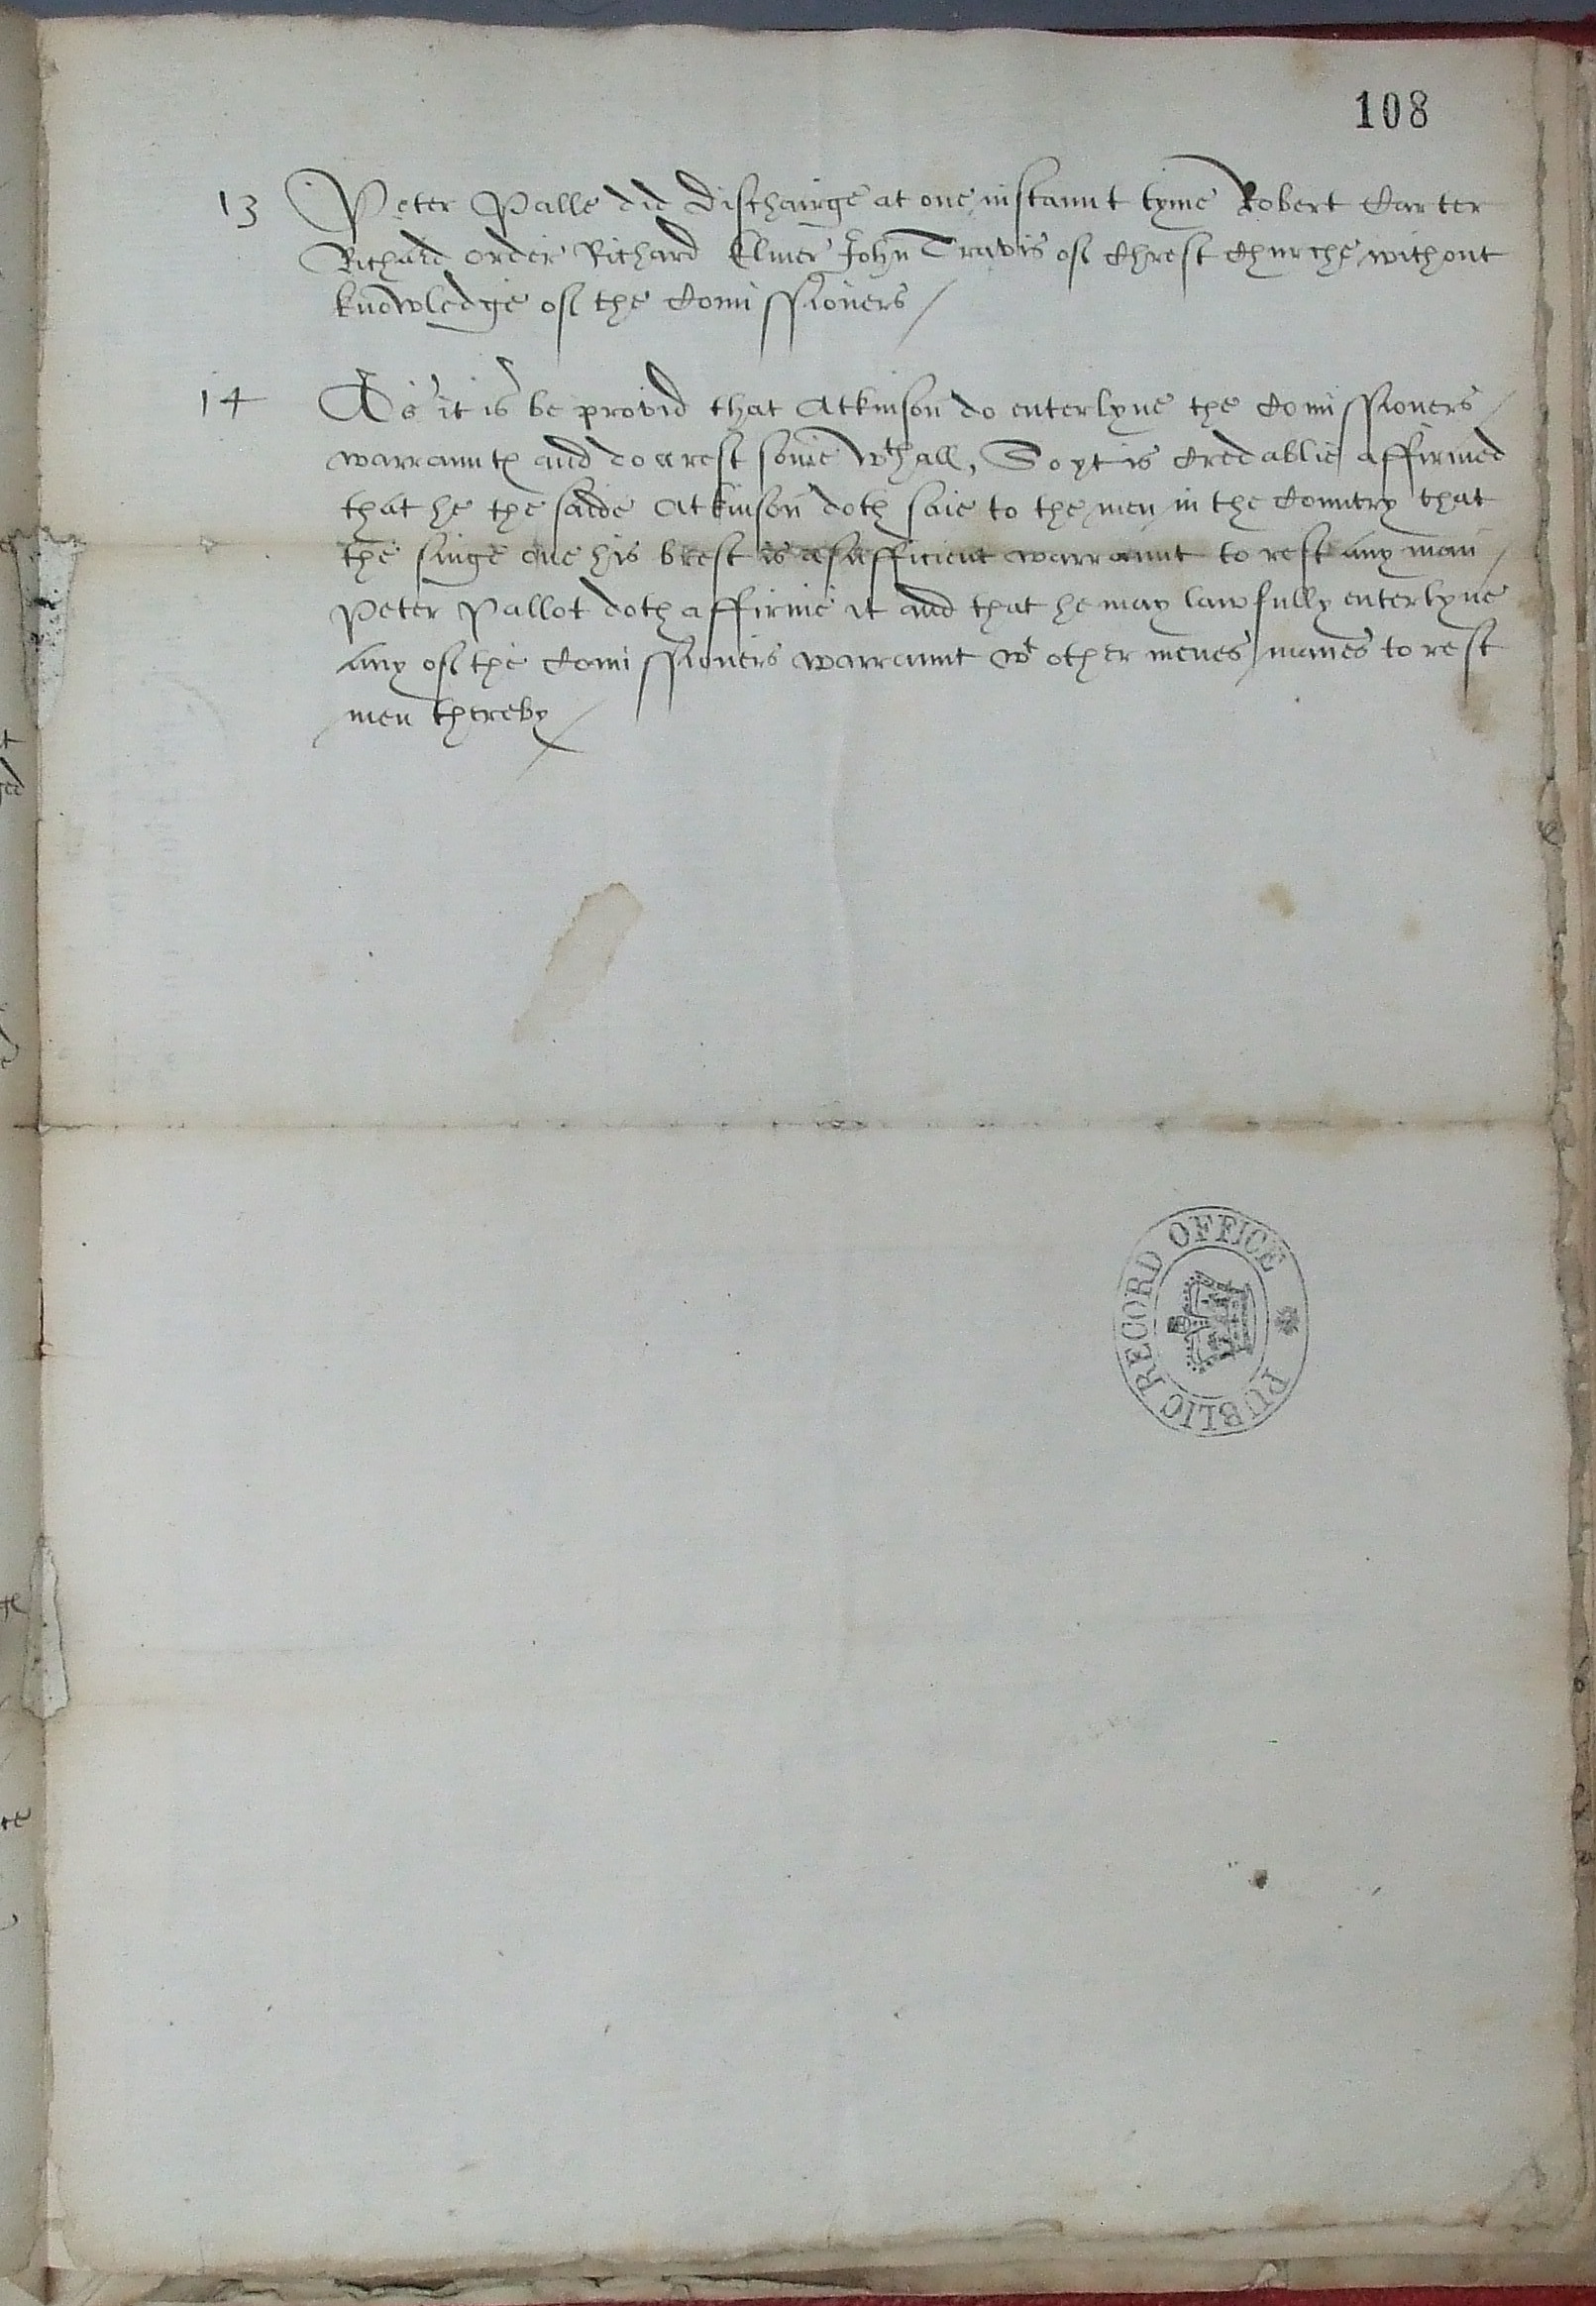 108
13 Peter Palle did dischairge at one instannt tyme Robert Carter
Richard Order Richard Elmer John Travis of Chrest Churche without
knowledge of the Comissioners /
14 As it is be provid that Atkinson do enterlyne the Comissioners /
warrannte and do arrest some wthall, So yt is credablie affirmed
that he the saide Atkinson doth saie to the men in the Country that
the singe one his brest is a sufficient warrannt to rest any man /
Peter Pallot doth affirme it and that he may lawfully enterlyne
any of the Comissioners warrannt wt other menes names to rest
men thereby /
PUBLIC RECORD OFFICE